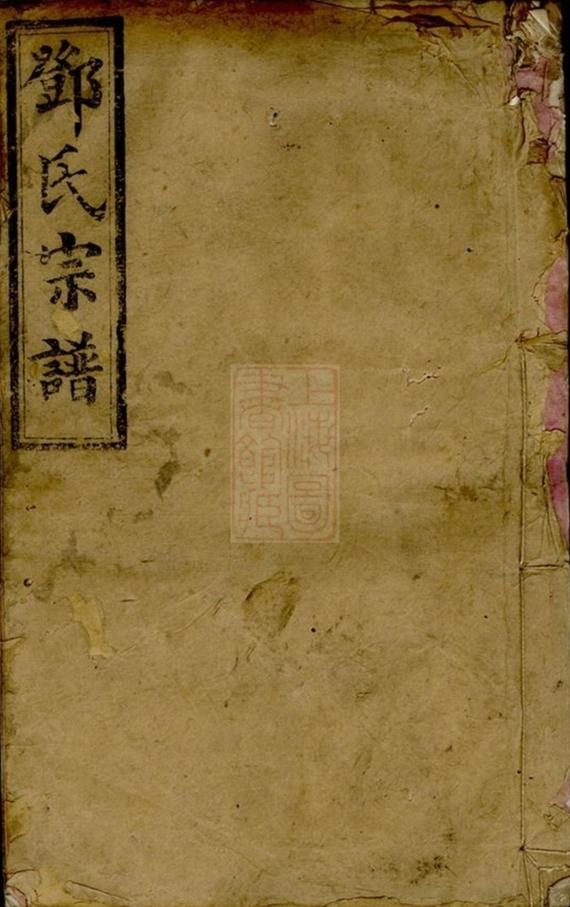 鄧氏宗譜
上海圖
書館藏